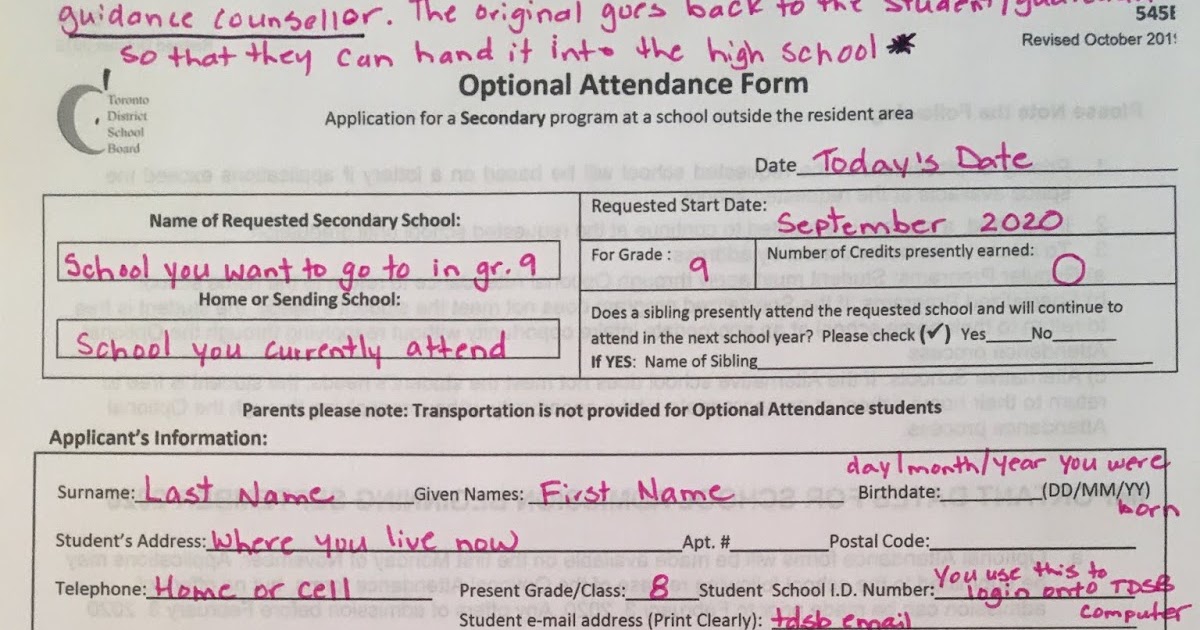 guidance counsellor. The original goes back to the student/
so that they can hand it into the high school *
545E
Revised October 201
Toronto
District
School
Board
Optional Attendance Form
Application for a Secondary program at a school outside the resident area
Date Today's Date
Name of Requested Secondary School:
School you want to go to in gr. 9
Home or Sending School:
School you currently attend
Requested Start Date:
September 2020
For Grade : 9
Number of Credits presently earned: 0
Does a sibling presently attend the requested school and will continue to
attend in the next school year? Please check (✓) Yes_____No_______
If YES: Name of Sibling
Parents please note: Transportation is not provided for Optional Attendance students
Applicant's Information:
day/month/year you were
Surname: Last Name Given Names: First Name Birthdate: (DD/MM/YY)
born
Student's Address: Where you live now Apt. # Postal Code:
You use this to
Telephone: Home or cell Present Grade/Class: 8 Student School I.D. Number: login onto TDSB
computer
Student e-mail address (Print Clearly): tdsb email